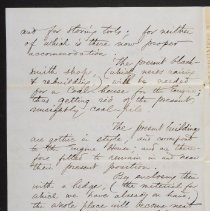 and for storing tools; for neither
of which is there now proper
accommodation.
The present black-
smith shop, (which needs raising
& rebuilding) will be needed
for a Coal house for the Engine;
thus getting rid of the present
unsightly coal pile
The present building
are gothic in style, and comport
to the Engine House; and are there-
fore fitted to remain in and near
their present position.
By enclosing them
with a hedge, (the material for
which we have already on hand,)
the whole place will become neat